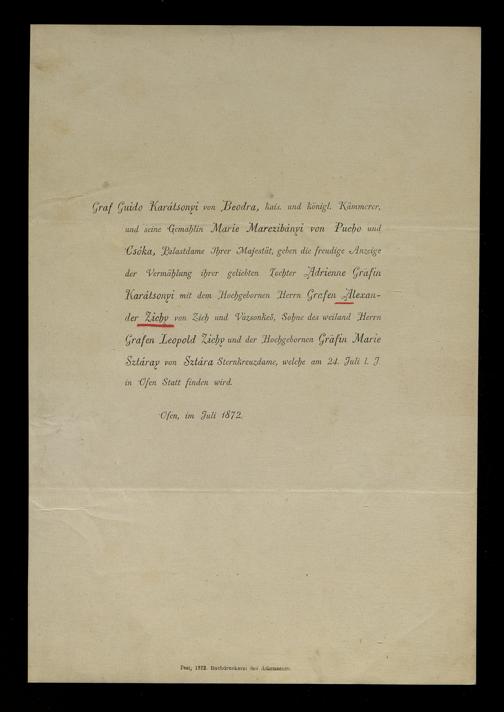 Graf Guido Karátsonyi von Beodra, kais. und königl. Kämmerer,
und seine Gemahlin Marie Marczibányi von Pucho und
Csóka, Palastdame Ihrer Majestät, geben die freudige Anzeige
der Vermählung ihrer geliebten Tochter Adrienne Gräfin
Karátsonyi mit dem Hochgebornen Herrn Grafen Alexan-
der Zichy von Zich und Vázsonkeö, Sohne des weiland Herrn
Grafen Leopold Zichy und der Hochgebornen Gräfin Marie
Sztáray von Sztára Sternkreuzdame, welche am 24. Juli l. J.
in Ofen Statt finden wird.
Ofen, im Juli 1872.
Pest, 1872. Buchdruckerei des Athenaeum.